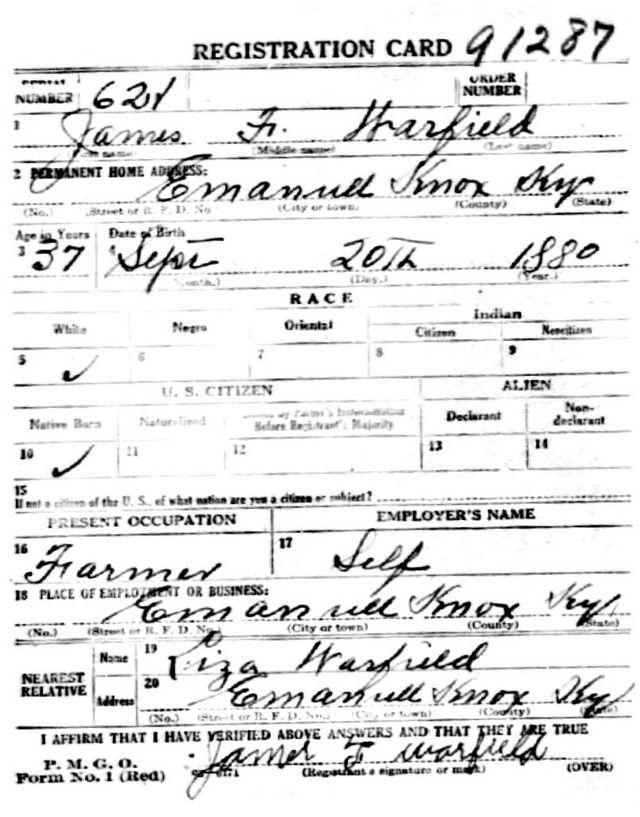 REGISTRATION CARD 91287
SERIAL NUMBER 621 ORDER NUMBER
1 James F. Warfield
(Middle name) (Last name)
2 PERMANENT HOME ADDRESS: Emanuel Knox Ky
(No.) (Street or R. F. D. No.) (City or town) (County) (State)
Age in Years Date of Birth
3 37 4 Sept 20Th 1880
(Month.) (Day.) (Year.)
RACE
White Negro Oriental Indian
Citizen Noncitizen
5 ✓ 6 7 8 9
U. S. CITIZEN ALIEN
Native Born Naturalized Citizen by Father's Naturalization Before Registrant's Majority Declarant Non-declarant
10 ✓ 11 12 13 14
15
If not a citizen of the U. S., of what nation are you a citizen or subject?
PRESENT OCCUPATION EMPLOYER'S NAME
16 Farmer 17 Self
18 PLACE OF EMPLOYMENT OR BUSINESS:
Emanuel Knox Ky
(No.) (Street or R. F. D. No.) (City or town) (County) (State)
NEAREST RELATIVE Name 19 Liza Warfield
Address 20 Emanuel Knox Ky
(No.) (Street or R. F. D. No.) (City or town) (County) (State)
I AFFIRM THAT I HAVE VERIFIED ABOVE ANSWERS AND THAT THEY ARE TRUE
P. M. G. O.
Form No. 1 (Red) James F Warfield
(Registrant's signature or mark) (OVER)